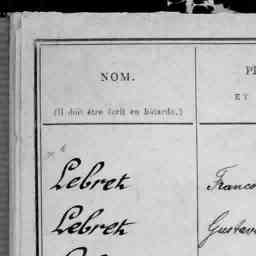 NOM.
P
ET
(Il doit être écrit en bâtarde.)
Lebret
Franco
Lebret
Gustav